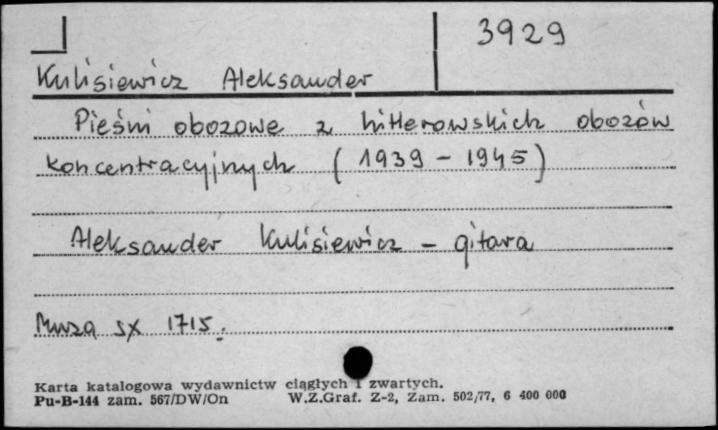 3929
Kulisiewicz Aleksander
Pieśni obozowe z hitlerowskich obozów
koncentracyjnych (1939 - 1945)
Aleksander Kulisiewicz - gitara
Muza SX 1715.
Karta katalogowa wydawnictw ciągłych i zwartych.
Pu-B-144 zam. 567/DW/On W.Z.Graf. Z-2, Zam. 502/77, 6 400 000